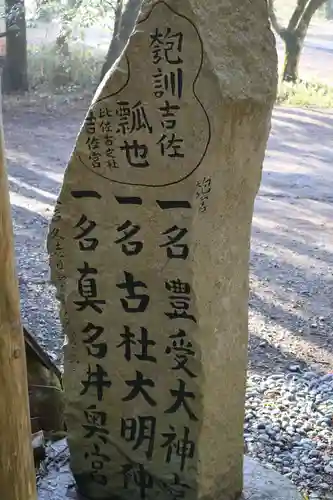 匏訓吉佐
瓢也
比佐古之社
吉佐宮
匏宮
一名豊受大神宮
一名古社大明神
一名真名井奥宮